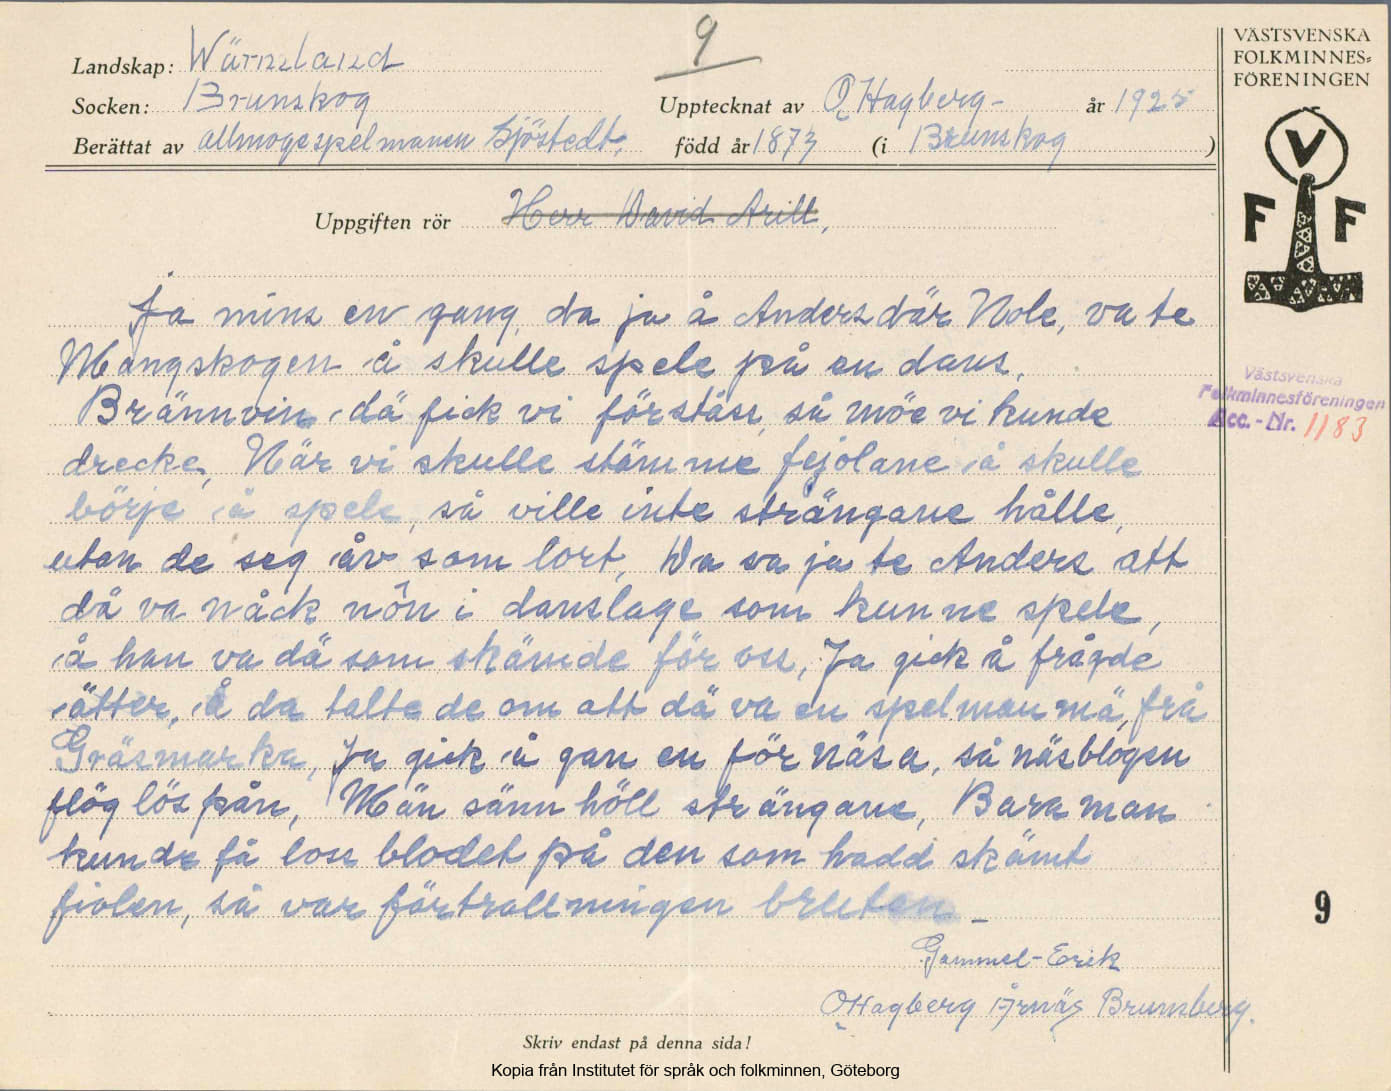 9
VÄSTSVENSKA
FOLKMINNES=
FÖRENINGEN
Landskap: Wärmland
Socken: Brunskog
Upptecknat av O Hagberg – år 1925
Berättat av allmogespelmanen Sjöstedt, född år 1873 (i Brunskog )
V
F F
Uppgiften rör Herr David Arill,
Ja mins en gang, da ja å Anders där Nole, va te
Mangskogen å skulle spele på en dans,
Västsvenska
Folkminnesföreningen
Acc. - Nr. 1183
Brännvin, dä fick vi förståss, så möe vi kunde
drecke, När vi skulle stämme fejolane å skulle
börje å spele, så ville inte strängane hålle,
utan de seg åv som lort, Da sa ja te Anders att
dä va nåck nôn i danslage som kunne spele,
å han va dä som skämde för oss, Ja gick å frågde
ätter, Å da talte de om att dä va en spelman mä, frå
Gräsmarka, Ja gick å gav en för näsa, så näsblogen
flög lös pån, Män sänn höll strängane, Bara man
kunde få loss blodet på den som hadd skämt
fiolen, så var förtrollningen bruten –
9
Gammel-Erik
O Hagberg Årnäs Brunsberg.
Skriv endast på denna sida!
Kopia från Institutet för språk och folkminnen, Göteborg